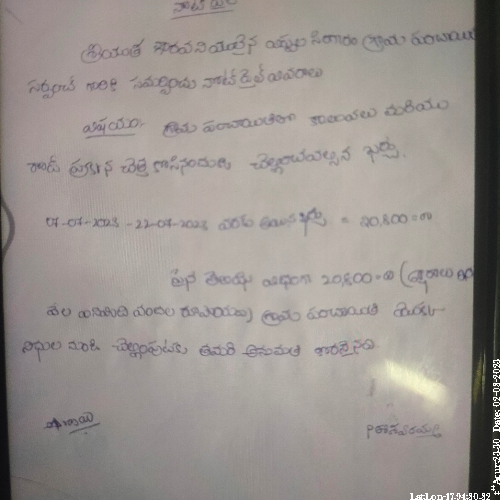 నోట్ ఫైల్
శ్రీయుత గౌరవనీయులైన గ్రామ పంచాయితి
సర్పంచ్ గారికి సమర్పించు నోట్ ఫైల్ వివరాలు
విషయం:- గ్రామ పంచాయితిలో కాలువలు మరియు
రోడ్ ప్రక్కన చెత్త తీసినందుకు చెల్లించవలసిన ఖర్చు.
07-07-2023 - 22-07-2023 వరకు అయిన ఖర్చు = 20,800=00
పైన తెలిపిన విధంగా 20,800=00 (అక్షరాల
వేల ఎనిమిది వందల రూపాయలు) గ్రామ పంచాయితి
నిధుల నుండి చెల్లించుటకు తమరి అనుమతి కోరనైనది
Lat:Lon-17.94:80.32
Date: 02-08-2023